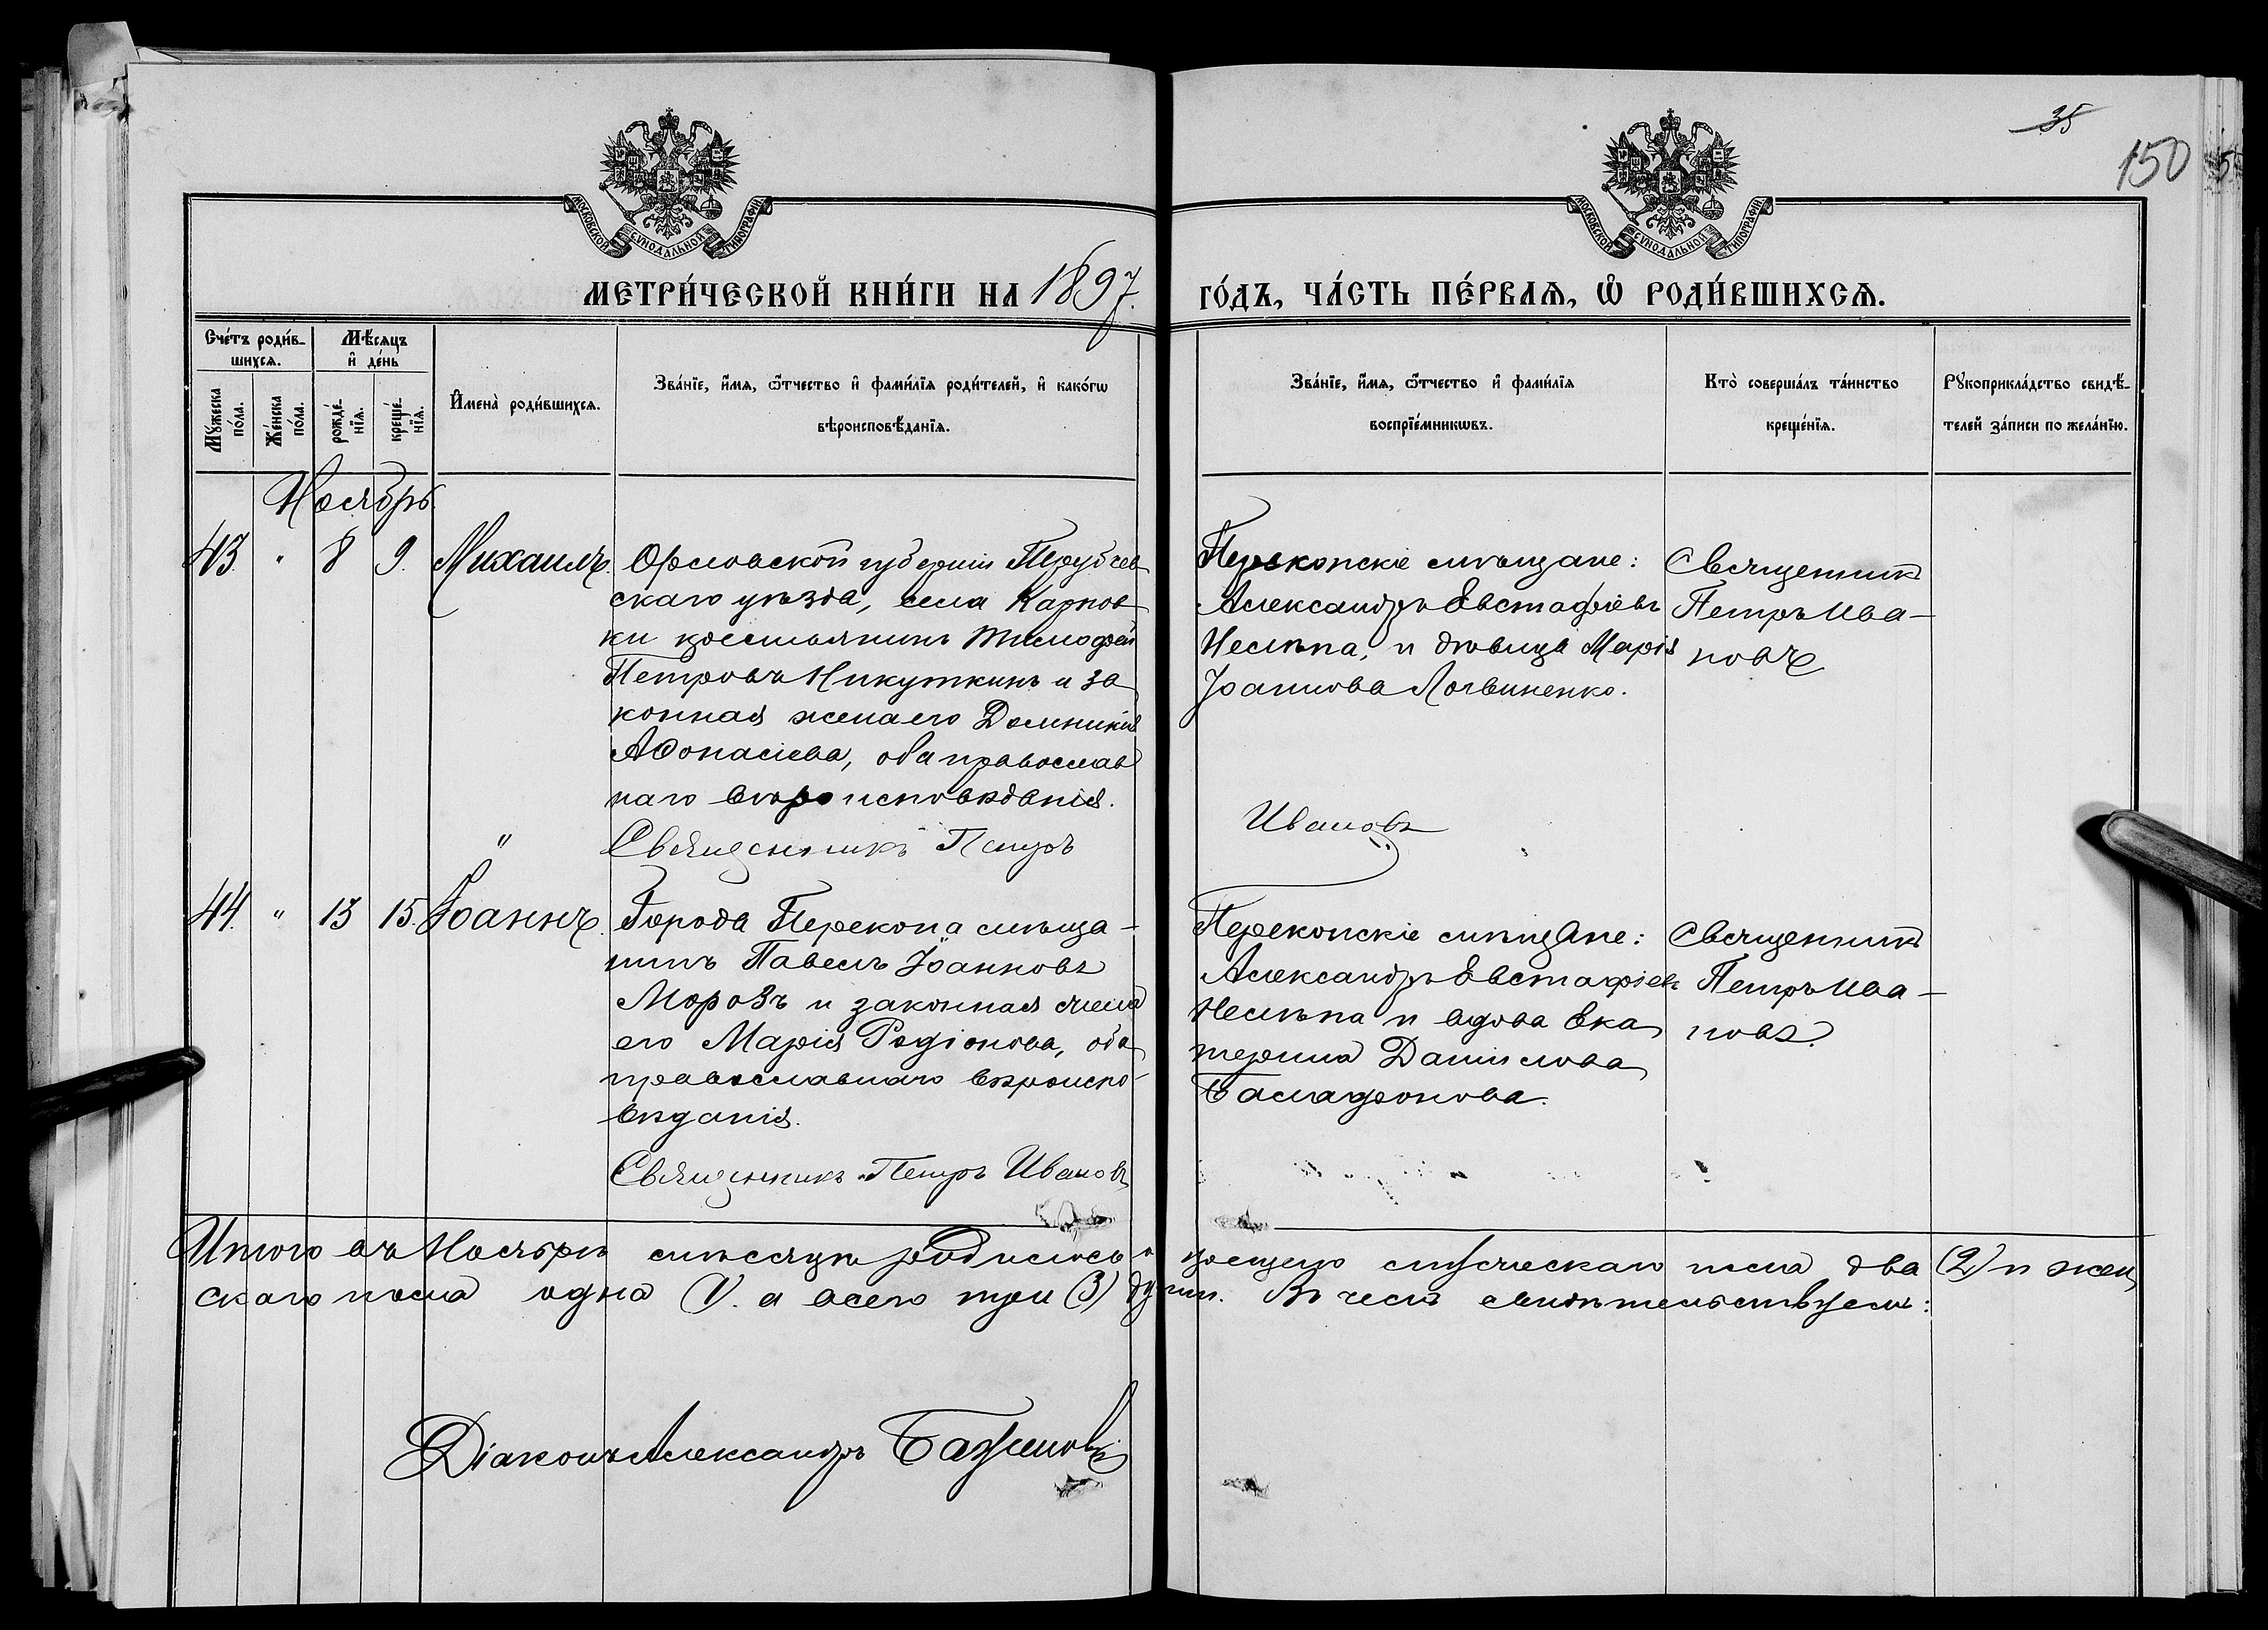 35
150
МОСКОВСКОЙ СѴНОДАЛЬНОЙ ТИПОГРАФІИ
МОСКОВСКОЙ СѴНОДАЛЬНОЙ ТИПОГРАФІИ
МЕТРИ́ЧЕСКОЙ КНИ́ГИ НА 1897.
ГО́ДЪ, ЧА́СТЬ ПЕ́РВАѦ, Ѽ РОДИ́ВШИХСѦ.
Сче́тъ роди́в-
шихсѧ.
Мꙋжеска
по́ла.
Же́нска
по́ла.
Мѣ́сѧцъ
и҆ де́нь
рожде́-
нїѧ.
креще́-
нїѧ.
И҆мена̀ роди́вшихсѧ.
Зва́нїе, и҆́мѧ, ѻ҆́тчество и҆ фами́лїѧ роди́телей, и҆ како́гѡ
вѣроисповѣ́данїѧ.
Зва́нїе, и҆́мѧ, ѻ҆́тчество и҆ фами́лїѧ
воспрїе́мникѡвъ.
Кто̀ соверша́лъ та́инство
креще́нїѧ.
Рꙋкоприкла́дство свидѣ́-
телей за́писи по жела́нїю.
Ноябрь
43. " 8 9. Михаилъ.
Орловской губерніи Трубчев
скаго уѣзда, села Карпов
ки крестьянинъ Тимофей
Петровъ Никуткинъ и за
конная жена его Домникія
Афонасіева, оба православ
наго вѣроисповѣданія.
Священникъ Петръ
Ивановъ
Перекопскіе мѣщане:
Александръ Евстафіевъ
Неслѣпа, и дѣвица Марія
Іоаннова Логвиненко.
Священникъ
Петръ Ива-
новъ
"
44. " 13 15. Іоаннъ.
Города Перекопа мѣща-
нинъ Павелъ Іоанновъ
Морозъ и законная жена
его Марія Родіонова, оба
православнаго вѣроиспо-
вѣданія.
Священникъ Петръ Ивановъ
Перекопскіе мѣщане:
Александръ Евстафіевъ
Неслѣпа и вдова Ека
терина Даніилова
Священникъ
Петръ Ива-
новъ.
Итого въ Ноябрѣ мѣсяцѣ родилось и крещено мужескаго пола два (2) и жен
скаго пола одна (1). а всего три (3) души. Въ чемъ свидѣтельствуемъ:
Діаконъ Александръ